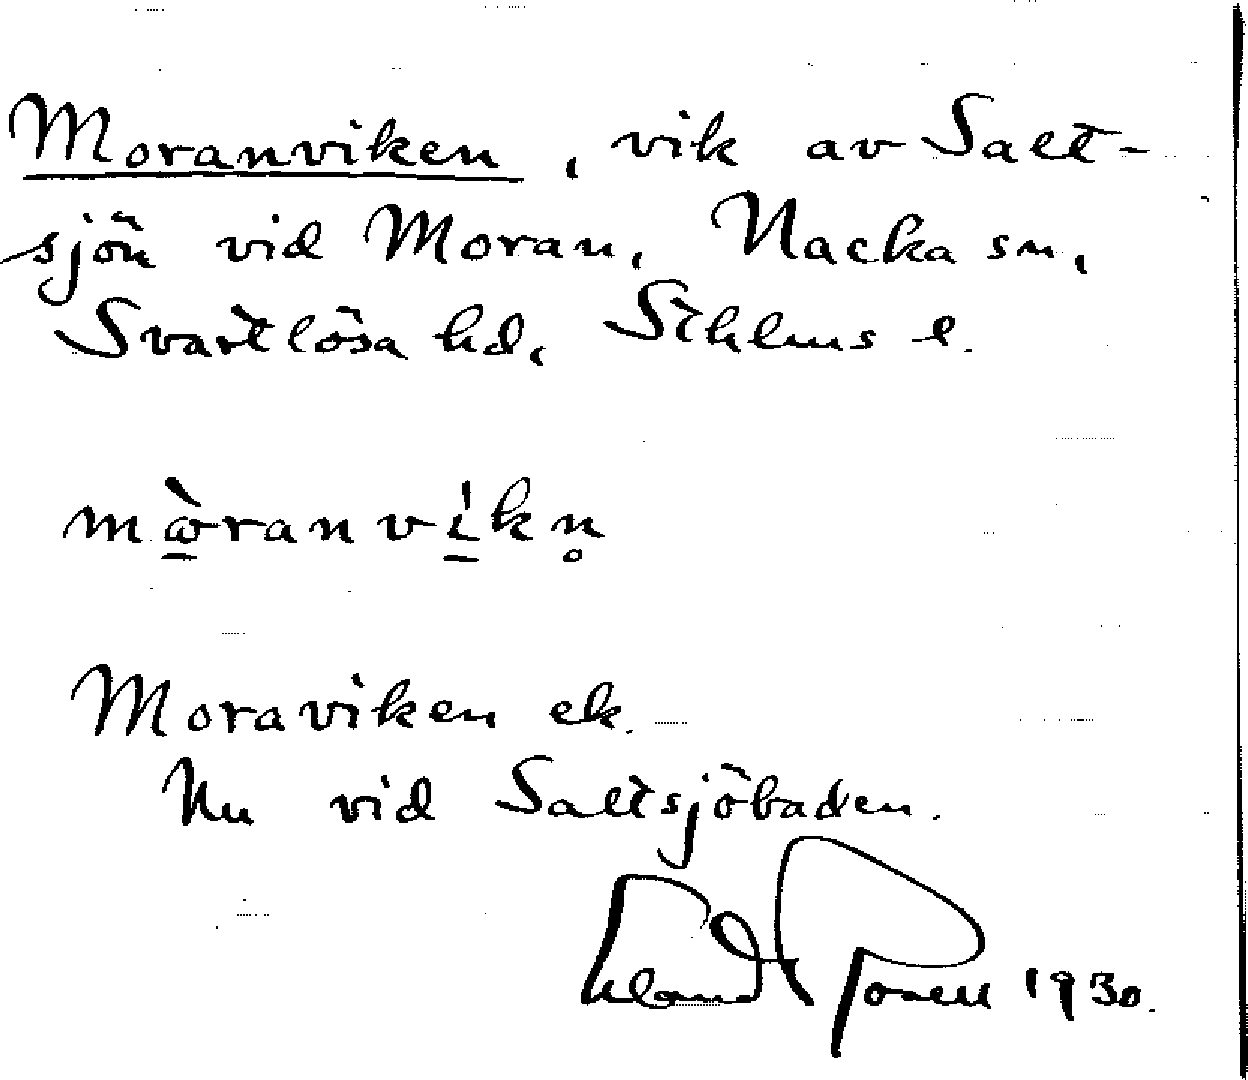 Moranviken, vik av Salt-
sjön vid Moran, Nacka sn,
Svartlösa hd, Sthlms l.
mὼranvíkn̥
Moraviken ek.
Nu vid Saltsjöbaden.
1930.